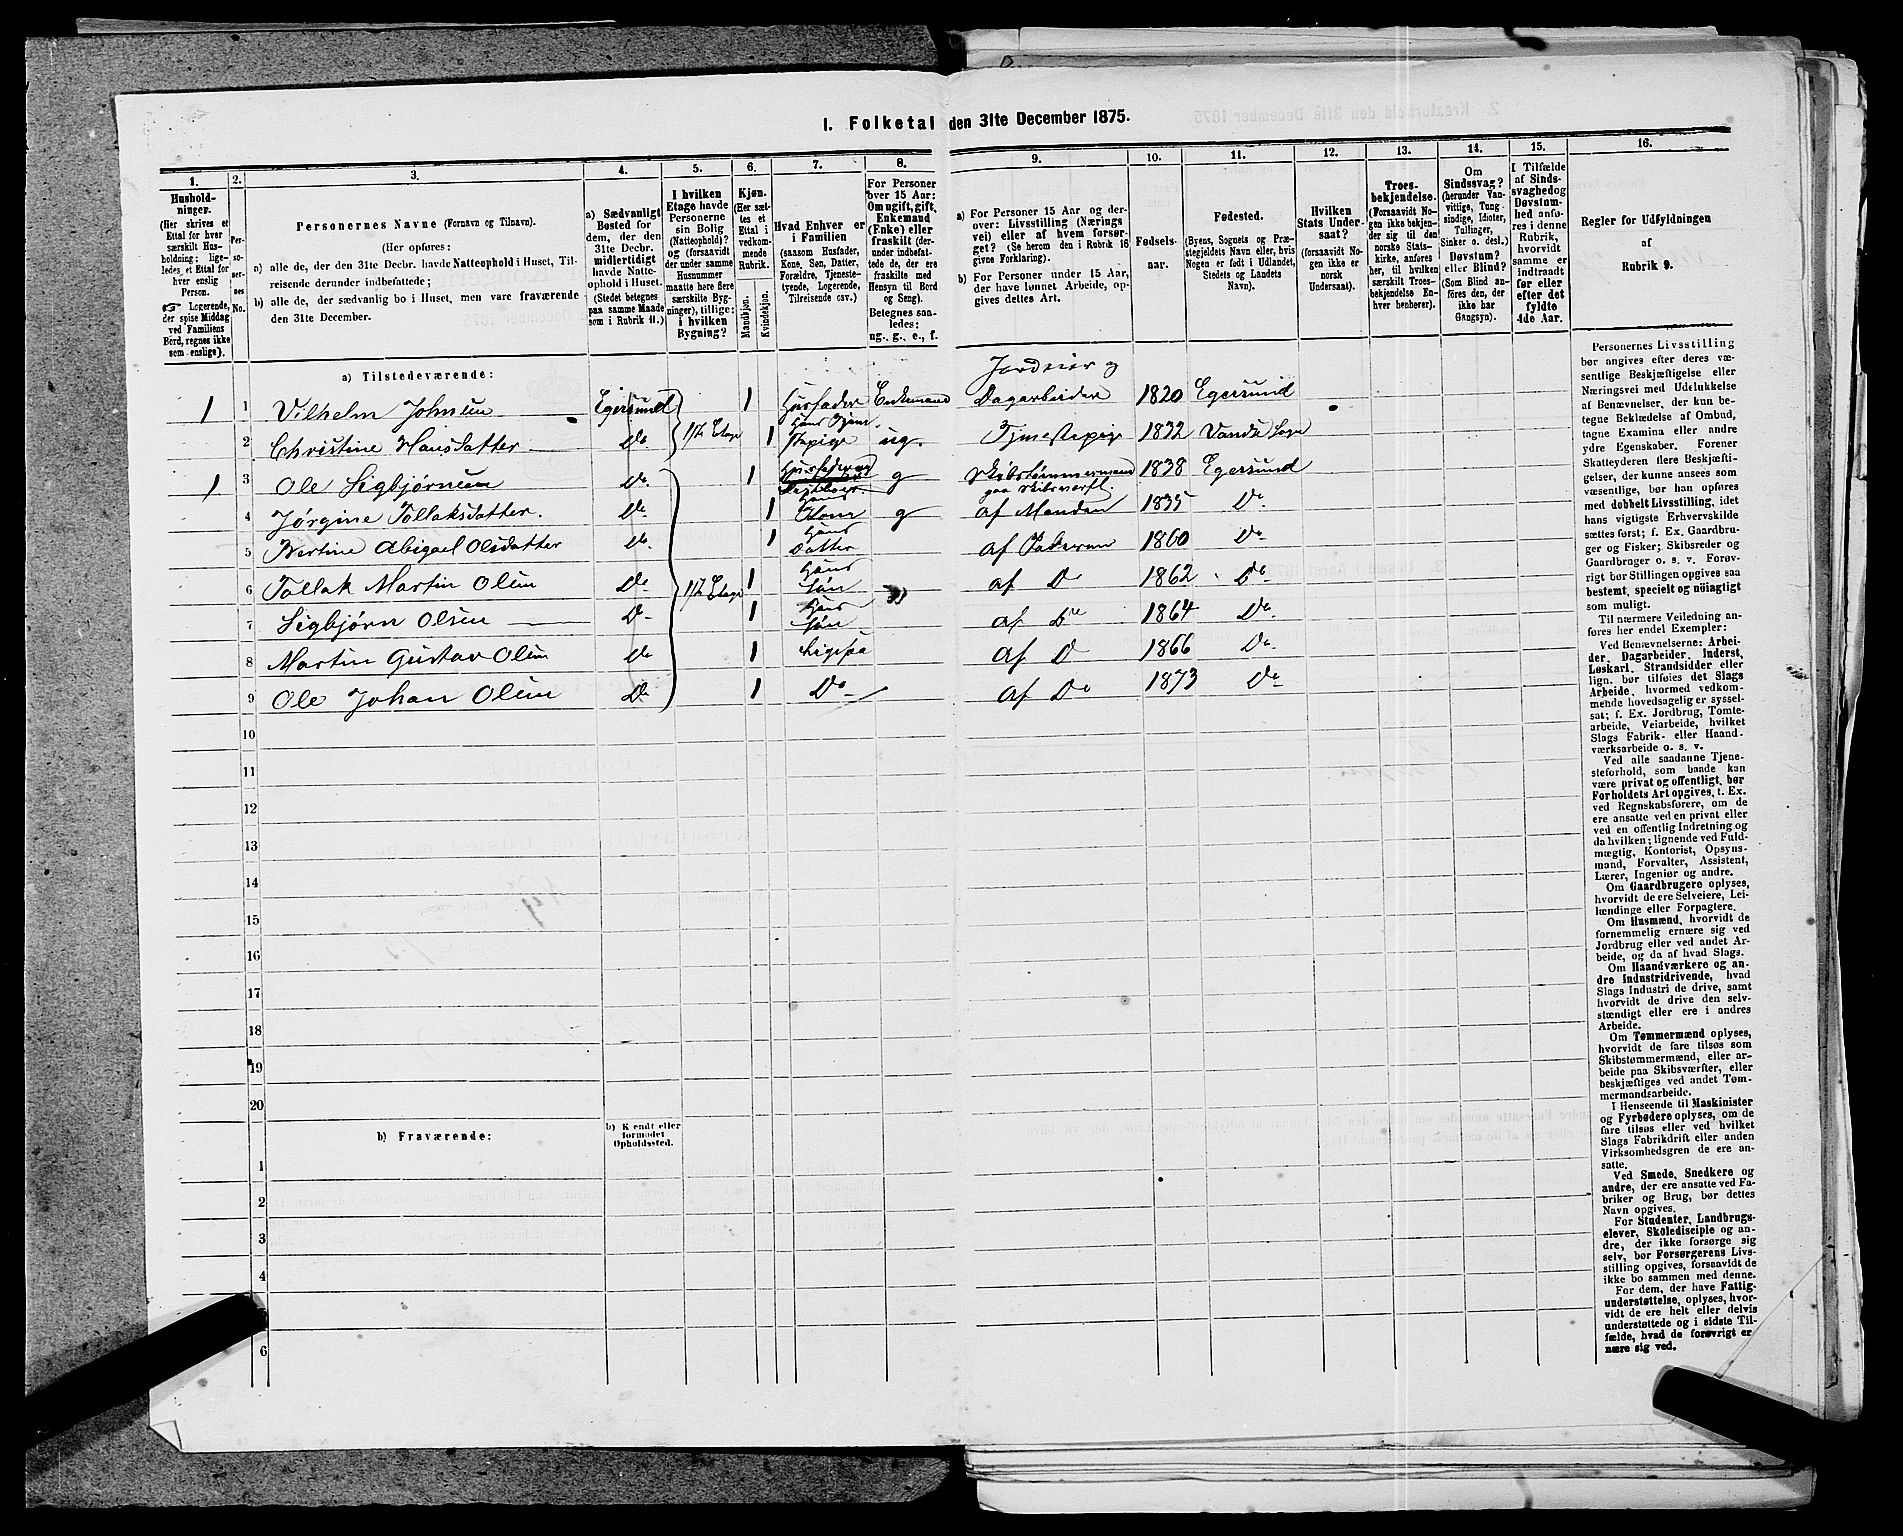 1. Folketal den 31te December 1875.
1. 2. 3. 4. 5. 6. 7. 8. 9. 10. 11. 12. 13. 14. 15. 16.
Hushold-
ninger.
(Her skrives et
Ettal for hver
særskilt Hus-
holdning: lige-
ledes et Ettal for
hver enslig
Person.
☞ Logerende,
der spise Middag
ved Familiens
Bord, regnes ikke
som enslige).
Per-
so-
ner-
nes
No.
Personernes Navne (Fornavn og Tilnavn).
(Her opføres:
a) alle de, der den 31te Decbr. havde Natteophold i Huset, Til-
reisende derunder indbefattede;
b) alle de, der sædvanlig bo i Huset, men vare fraværende
den 31te December.
a) Sædvanligt
Bosted for
dem, der den
31te Decbr.
midlertidigt
havde Natte-
ophold i Huset.
(Stedet betegnes
paa samme Maade
som i Rubrik 11.)
I hvilken
Etage havde
Personerne
sin Bolig
(Natteophold)?
og (forsaavidt
der under samme
Husnummer
maatte høre flere
særskilte Byg-
ninger), tillige:
i hvilken
Bygning?
Kjøn.
(Her sæt-
tes et
Ettal i
vedkom-
mende
Rubrik.
Mandkjøn.
Kvindekjøn.
Hvad Enhver er
i Familien
(saasom Husfader,
Kone, Søn, Datter,
Forældre, Tjeneste-
tyende, Logerende,
Tilreisende osv.)
For Personer
over 15 Aar:
Om ugift, gift,
Enkemand
(Enke) eller
fraskilt (der-
under indbefat-
tede de, der ere
fraskilte med
Hensyn til Bord
og Seng).
Betegnes saa-
ledes:
ug., g., e., f.
a) For Personer 15 Aar og der-
over: Livsstilling (Nærings-
vei) eller af hvem forsør-
get? (Se herom den i Rubrik 16
givne Forklaring).
b) For Personer under 15 Aar,
der have lønnet Arbeide, op-
gives dettes Art.
Fødsels-
aar.
Fødested.
(Byens, Sognets og Præ-
stegjeldets Navn eller, hvis
Nogen er født i Udlandet,
Stedets og Landets
Navn).
Hvilken
Stats Under-
saat?
(forsaavidt
Nogen ikke er
norsk
Undersaat).
Troes-
bekjendelse.
(Forsaavidt No-
gen ikke bekjen-
der sig til den
norske Stats-
kirke, anføres
her, til hvilken
særskilt Troes-
bekjendelse En-
hver henhører).
Om
Sindssvag?
(herunder Van-
vittige, Tung-
sindige, Idioter,
Tullinger,
Sinker o. desl.)
Døvstum?
eller Blind?
(Som Blind an-
føres den, der
ikke har
Gangsyn).
I Tilfælde
af Sinds-
svaghed og
Døvstum-
hed anfø-
res i denne
Rubrik,
hvorvidt
samme er
indtraadt
før eller
efter det
fyldte
4de Aar.
Regler for Udfyldningen
af
Rubrik 9.
a) Tilstedeværende:
Jordeier og
1 1 Vilhelm Johnsen Egersund 1 Husfader Enkemand Dagarbeider 1820 Egersund
2 Christine Hansdatter Do 1ste Etage 1 Hans Tjenestepige ug. Tjenestepige 1832 Sogn
1 3 Ole Sigbjørnsen Do 1 g Skibstømmermand 1838 Egersund
paa Skibsværft.
4 Jørgine Tollaksdatter. Do 1 Hans Kone g af Manden 1835 Do
5 Bertine Abigael Olsdatter Do 1 Hans Datter af Faderen 1860 Do
6 Tollak Martin Olsen Do 1ste Etage 1 Hans Søn af Do 1862 Do
7 Sigbjørn Olsen Do 1 Hans Søn af Do 1864 Do
8 Martin Gustav Olsen Do 1 Ligesaa af Do 1866 Do
9 Ole Johan Olsen Do 1 Do af Do 1873 Do
10
11
12
13
14
15
16
17
18
19
20
b) Fraværende:
b) Kjendt eller
formodet
Opholdssted.
1
2
3
4
5
6
Personernes Livsstilling
bør angives efter deres væ-
sentlige Beskjæftigelse eller
Næringsvei med Udelukkelse
af Benævnelser, der kun be-
tegne Beklædelse af Ombud,
tagne Examina eller andre
ydre Egenskaber. Forener
Skatteyderen flere Beskjæfti-
gelser, der kunne ansees som
væsentlige, bør han opføres
med dobbelt Livsstilling, idet
hans vigtigste Erhvervskilde
sættes først; f. Ex. Gaardbru-
ger og Fisker; Skibsreder og
Gaardbruger o. s. v. Forøv-
rigt bør Stillingen opgives saa
bestemt, specielt og nøiagtigt
som muligt.
Til nærmere Veiledning an-
føres her endel Exempler:
Ved Benævnelserne: Arbei-
der, Dagarbeider, Inderst,
Løskarl, Strandsidder eller
lign. bør tilføies det Slags
Arbeide, hvormed vedkom-
mende hovedsagelig er syssel-
sat; f. Ex. Jordbrug, Tomte-
arbeide, Veiarbeide, hvilket
Slags Fabrik- eller Haand-
værksarbeide o. s. v.
Ved alle saadanne Tjene-
steforhold, som baade kan
være privat og offentligt, bør
Forholdets Art opgives, t. Ex.
ved Regnskabsførere, om de
ere ansatte ved en privat eller
ved en offentlig Indretning og
da hvilken; lignende ved Fuld-
mægtig, Kontorist, Opsyns-
mand, Forvalter, Assistent,
Lærer, Ingeniør og andre.
Om Gaardbrugere oplyses,
hvorvidt de ere Selveiere, Lei-
lændinge eller Forpagtere.
Om Husmænd, hvorvidt de
fornemmelig ernære sig ved
Jordbrug eller ved andet Ar-
beide, og da af hvad Slags.
Om Haandværkere og an-
dre Industridrivende, hvad
Slags Industri de drive, samt
hvorvidt de drive den selv-
stændigt eller ere i andres
Arbeide.
Om Tømmermænd oplyses,
hvorvidt de fare tilsøs som
Skibstømmermænd, eller ar-
beide paa Skibsværfter, eller
beskjæftiges ved andet Tøm-
mermandsarbeide.
I Henseende til Maskinister
og Fyrbødere oplyses, om de
fare tilsøs eller ved hvilket
Slags Fabrikdrift eller anden
Virksomhedsgren de ere an-
satte.
Ved Smede, Snedkere og
andre, der ere ansatte ved Fa-
briker og Brug, bør dettes
Navn opgives.
For Studenter, Landbrugs-
elever, Skoledisciple og an-
dre, der ikke forsørge sig
selv, bør Forsørgerens Livs-
stilling opgives, forsaavidt de
ikke bo sammen med denne.
For dem, der have Fattig-
understøttelse, oplyses, hvor-
vidt de ere helt eller delvis
understøttede og i sidste Til-
fælde, hvad de forøvrigt er-
nære sig ved.